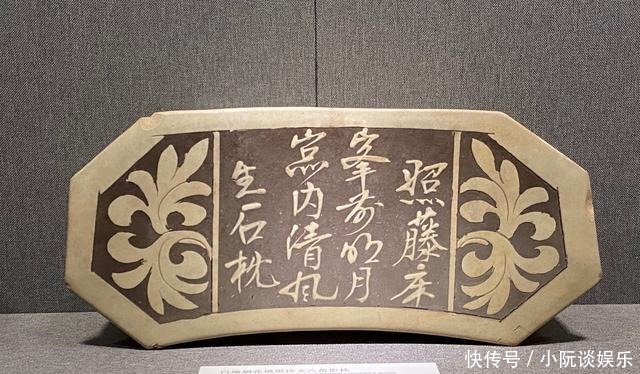 照藤床
峯前明月
窓内清風
生石枕
快传号 / 小阮谈娱乐